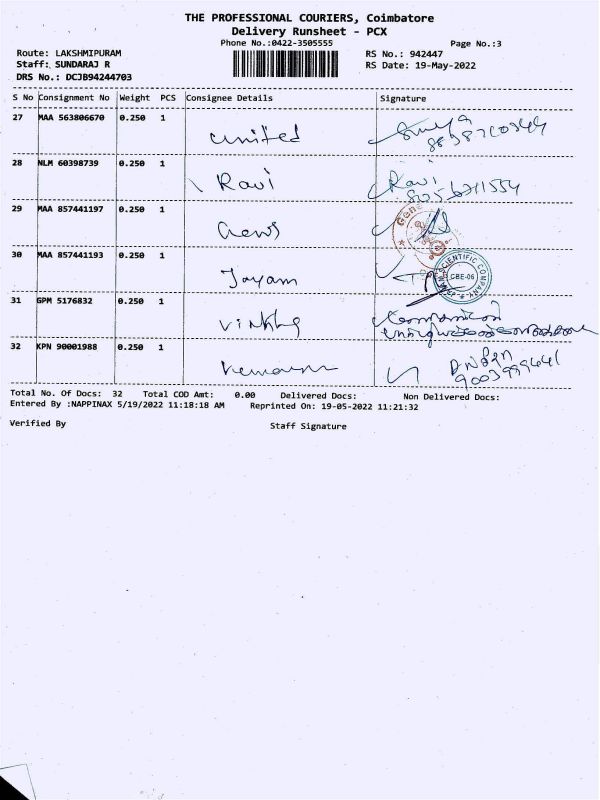 THE PROFESSIONAL COURIERS, Coimbatore
Delivery Runsheet - PCX
Phone No.:0422-3505555
Page No.:3
Route: LAKSHMIPURAM
RS No.: 942447
Staff: SUNDARAJ R
RS Date: 19-May-2022
DRS No.: DCJB94244703
S No Consignment No Weight PCS Consignee Details Signature
27 MAA 563806670 0.250 1 united
28 NLM 60398739 0.250 1 Ravi Ravi
29 MAA 857441197 0.250 1 news
30 MAA 857441193 0.250 1 Jayam
SCIENTIFIC COMPANY
CBE-06
31 GPM 5176832 0.250 1
32 KPN 90001988 0.250 1
Total No. Of Docs: 32 Total COD Amt: 0.00 Delivered Docs: Non Delivered Docs:
Entered By :NAPPINAX 5/19/2022 11:18:18 AM Reprinted On: 19-05-2022 11:21:32
Verified By Staff Signature